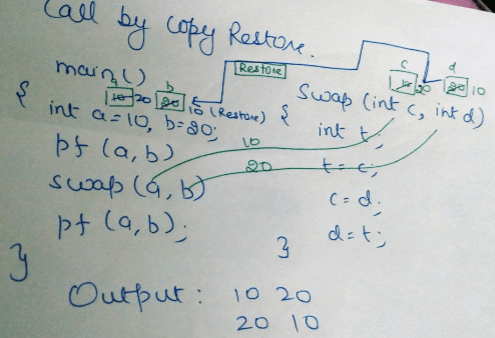 Call by Copy Restore.
Restore
c d
main()
a b
10 20 20 10 (Restore)
10 20 20 10
swap (int c, int d)
{ int a=10, b=20;
{ int t,
pf (a,b)
10
t=c;
swap (a,b)
20
c=d;
pf (a,b);
d=t;
}
}
Output: 10 20
20 10